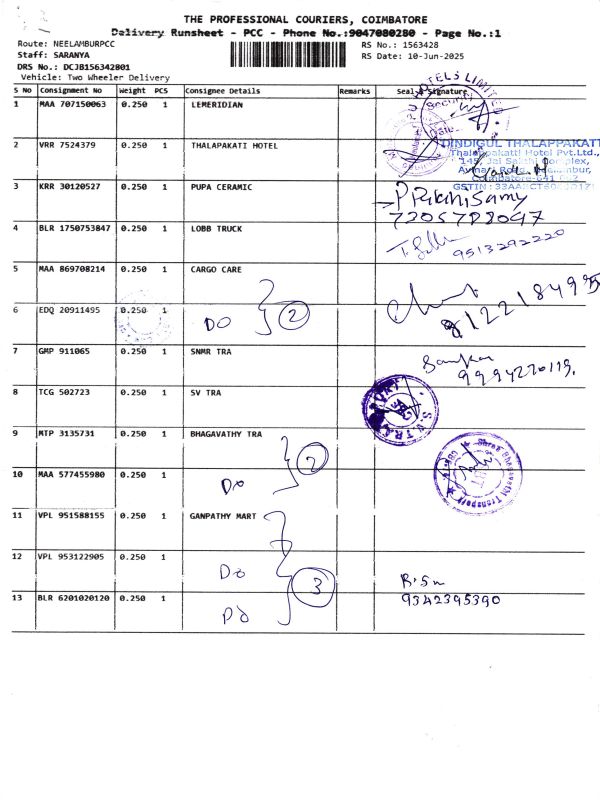 THE PROFESSIONAL COURIERS, COIMBATORE
Delivery Runsheet - PCC - Phone No.:9047080280 - Page No.:1
Route: NEELAMBURPCC
RS No.: 1563428
Staff: SARANYA
RS Date: 10-Jun-2025
DRS No.: DCJB156342801
Vehicle: Two Wheeler Delivery
S No Consignment No Weight PCS Consignee Details Remarks Seal & Signature
1 MAA 707150063 0.250 1 LEMERIDIAN
HOTELS LIMITED
Security
2 VRR 7524379 0.250 1 THALAPAKATI HOTEL
DINDIGUL THALAPPAKATTI
Thalappakatti Hotel Pvt.Ltd.,
145, Jai Sakthi Complex,
Coimbatore-641 062
3 KRR 30120527 0.250 1 PUPA CERAMIC
GSTIN : 33AAXCT60
4 BLR 1750753847 0.250 1 LOBB TRUCK
9513292220
5 MAA 869708214 0.250 1 CARGO CARE
8122184995
6 EDQ 20911495 0.250 1 DO 2
7 GMP 911065 0.250 1 SNMR TRA
9994270119.
8 TCG 502723 0.250 1 SV TRA
9 MTP 3135731 0.250 1 BHAGAVATHY TRA
Shree Bhagavathi Transport
CBE
10 MAA 577455980 0.250 1 Do 2
11 VPL 951588155 1 0.250 1 GANPATHY MART
12 VPL 953122905 0.250 1 Do 3
13 BLR 6201020120 0.250 1 Do
9342395390